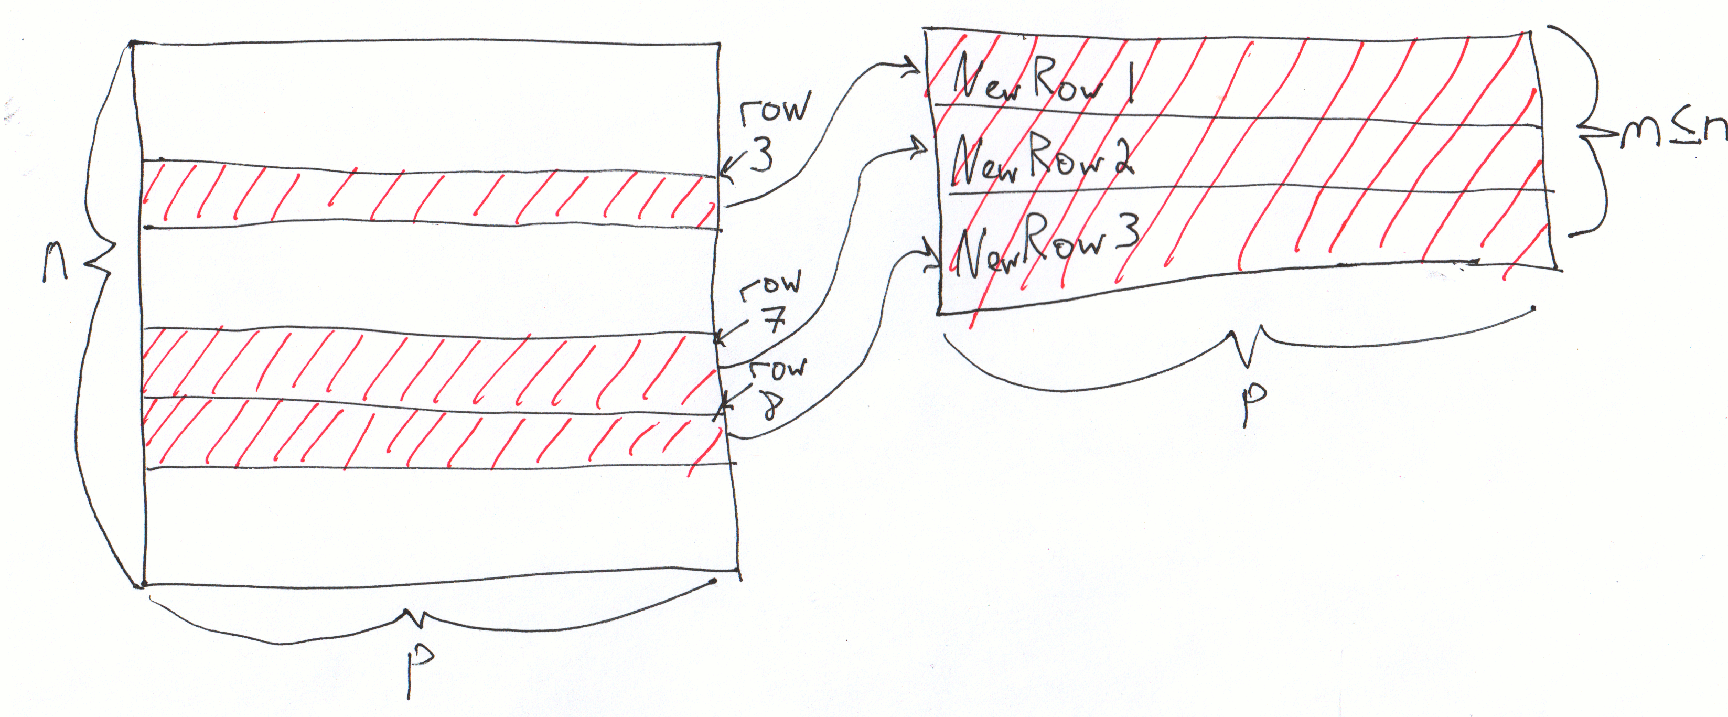 row
3
n
row
7
row
8
p
New Row 1
New Row 2
New Row 3
m ≤ n
p